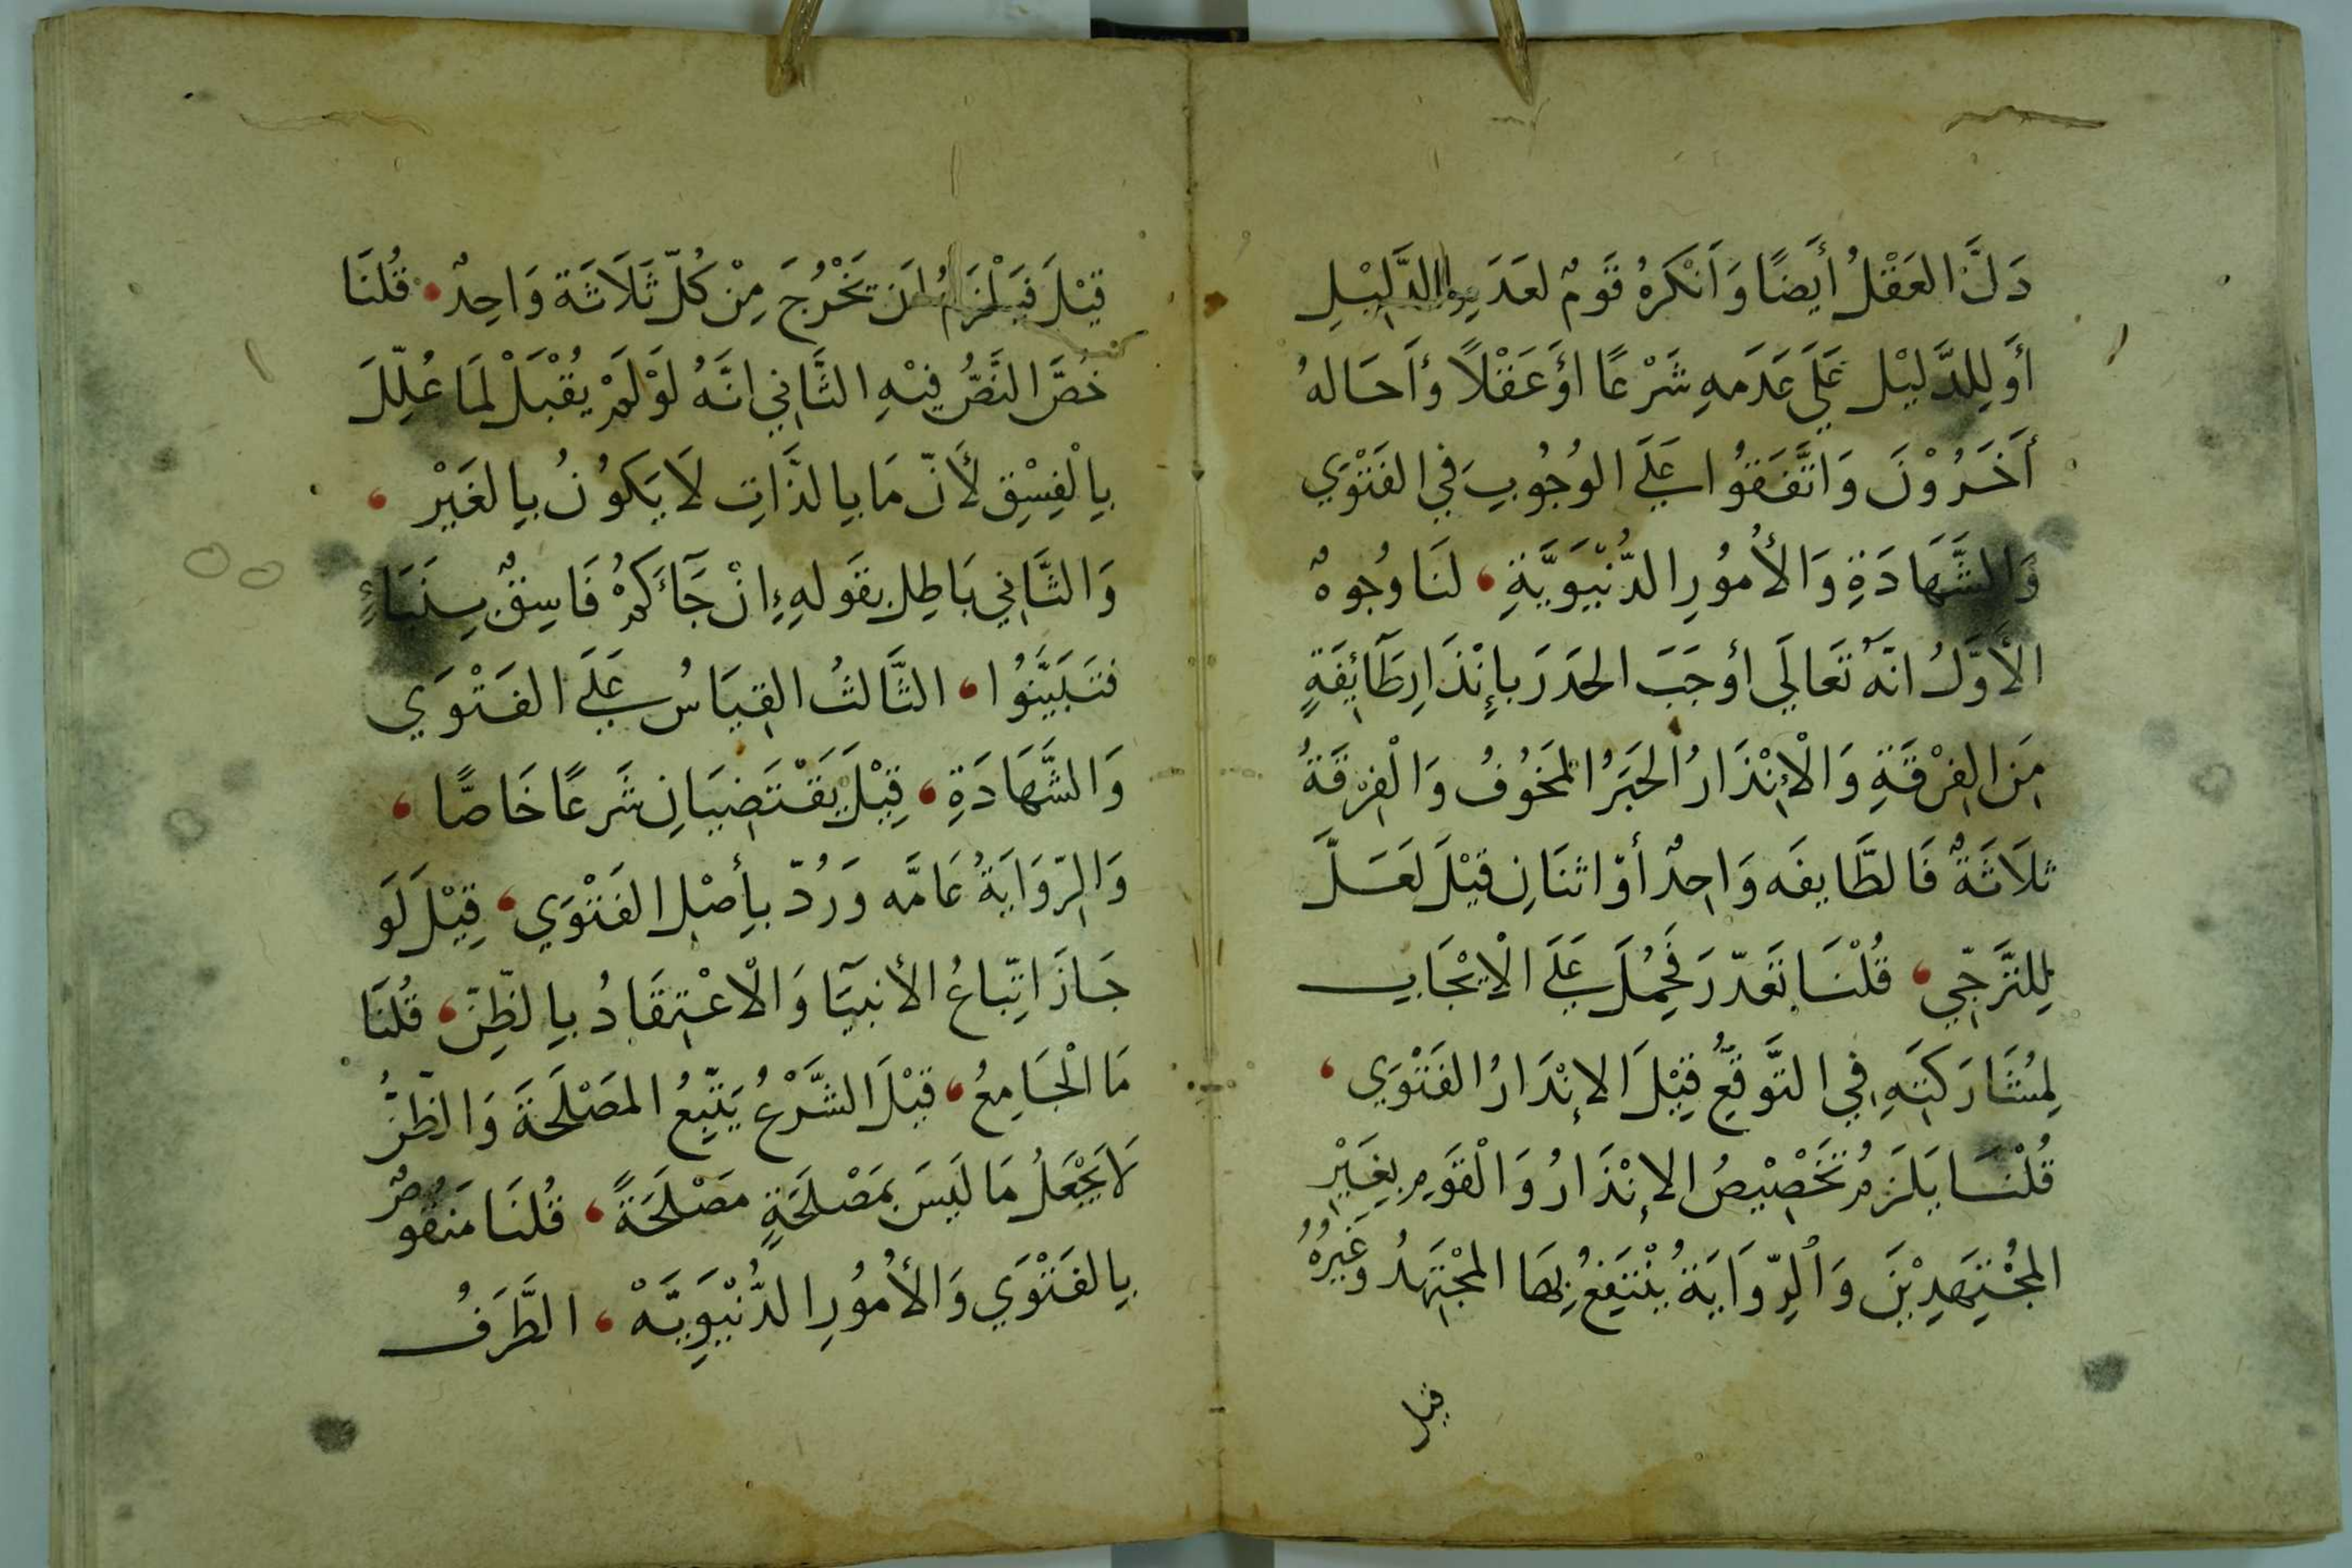 دَلَّ العَقْلُ أَيضًا وَأَنْكَرهُ قَومٌ لعَدَمِ الدَّلِيْلِ
أَو لِلدَّليْل عَلَى عَدَمهِ شَرْعًا أوَ عَقْلاً وأَحَالهُ
أَخَرُوْنَ وَاتَّفَقوُا عَلَى الوُجُوبِ في الفَتْوَي
وَالشَّهَادَةِ وَالأمُوُرِ الدُّنْيَوِيَّةِ، لنَا وُجُوهٌ
الأَوّلُ انّهُ تَعَالَي أوجَبَ الحَدَرَ بإنْذَارِ طَآئِفَةٍ
مِنَ الفِرْقَةِ وَالْإنْذَارُ الخبَرُ المَخوُفُ وَالْفِرْقَةُ
ثلَاثَةٌ فَالطَّايفَه وَاحِدٌ أوْ اثنَانِ قيْلَ لَعَلَّ
لِلتَّرَجِّي، قُلْنَا تَعَدّرَ فَحُمِلَ عَلَى الْإيْجَابِ
لِمُشَارَكَتِهِ في التَّوقّعِ قِيْلَ الإنْدَارُ الفَتْوَي،
قُلْنَا يَلزَمُ تَخْصِيْصُ الإنْذَارُ وَالْقَومِ بغَيْرِ
المجْتِهِدِيْنَ وَالرِّوَايَةُ يُنْتَفِعُ بِهَا المجْتَهِدُ وَغَيْرُهُ
قيل
قيْلَ فَيَلْزَمُ أن يَخْرُجَ مِنْ كُلّ ثَلَاثَة وَاحِدٌ، قُلنَا
خُصَّ النَّصُّ فيْهِ الثَّاني انَّهُ لَوْ لَمْ يُقْبَلْ لمَا عُلِّلَ
بِالْفِسْقِ لأَنّ مَا بِالذَّاتِ لَا يَكوُنُ بِالغَيْرِ،
وَالثَّاني بَاطِل بقَولهِ إنْ جَآءَكمُ فَاسِقٌ بِنَبَاءٍ
فتَبَيَّنُوا، الثَّالثُ القيَاسُ عَلَى الفَتْوَي
وَالشَّهَادَةِ، قِيْلَ يَقْتَضِيَانِ شَرعًا خَاصًّا،
وَالرّوَايَةُ عَامَّه وَرُدّ بأِصْلِ الفَتْوَي، قِيْلَ لَو
جَازَ اتِّباعُ الأنبيَآ وَالْاعْتِقَادُ بِالظّنِّ، قُلنَا
مَا الْجَامِعُ، قيْلَ الشَّرْعُ يَتّبِعُ المَصْلَحَةَ وَالظّنُّ
لاَ يَجْعَلُ مَا لَيسَ بمَصْلحَةٍ مصْلَحَةً، قُلنَا مَنقوُصٌ
بِالفَتْوَي وَالأمُوُرِ الدُّنْيَوِيَّهْ، الطَّرَفُ